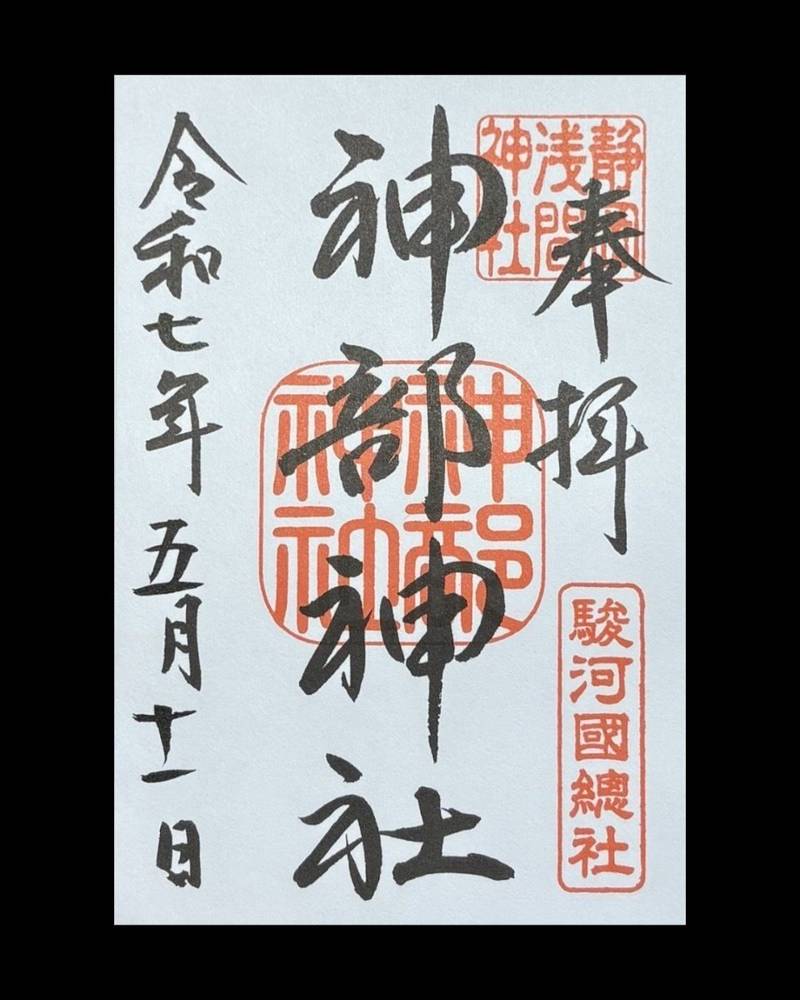 奉拝
静岡
浅間
神社
駿河國總社
神部神社
神部
神社
令和七年五月十一日